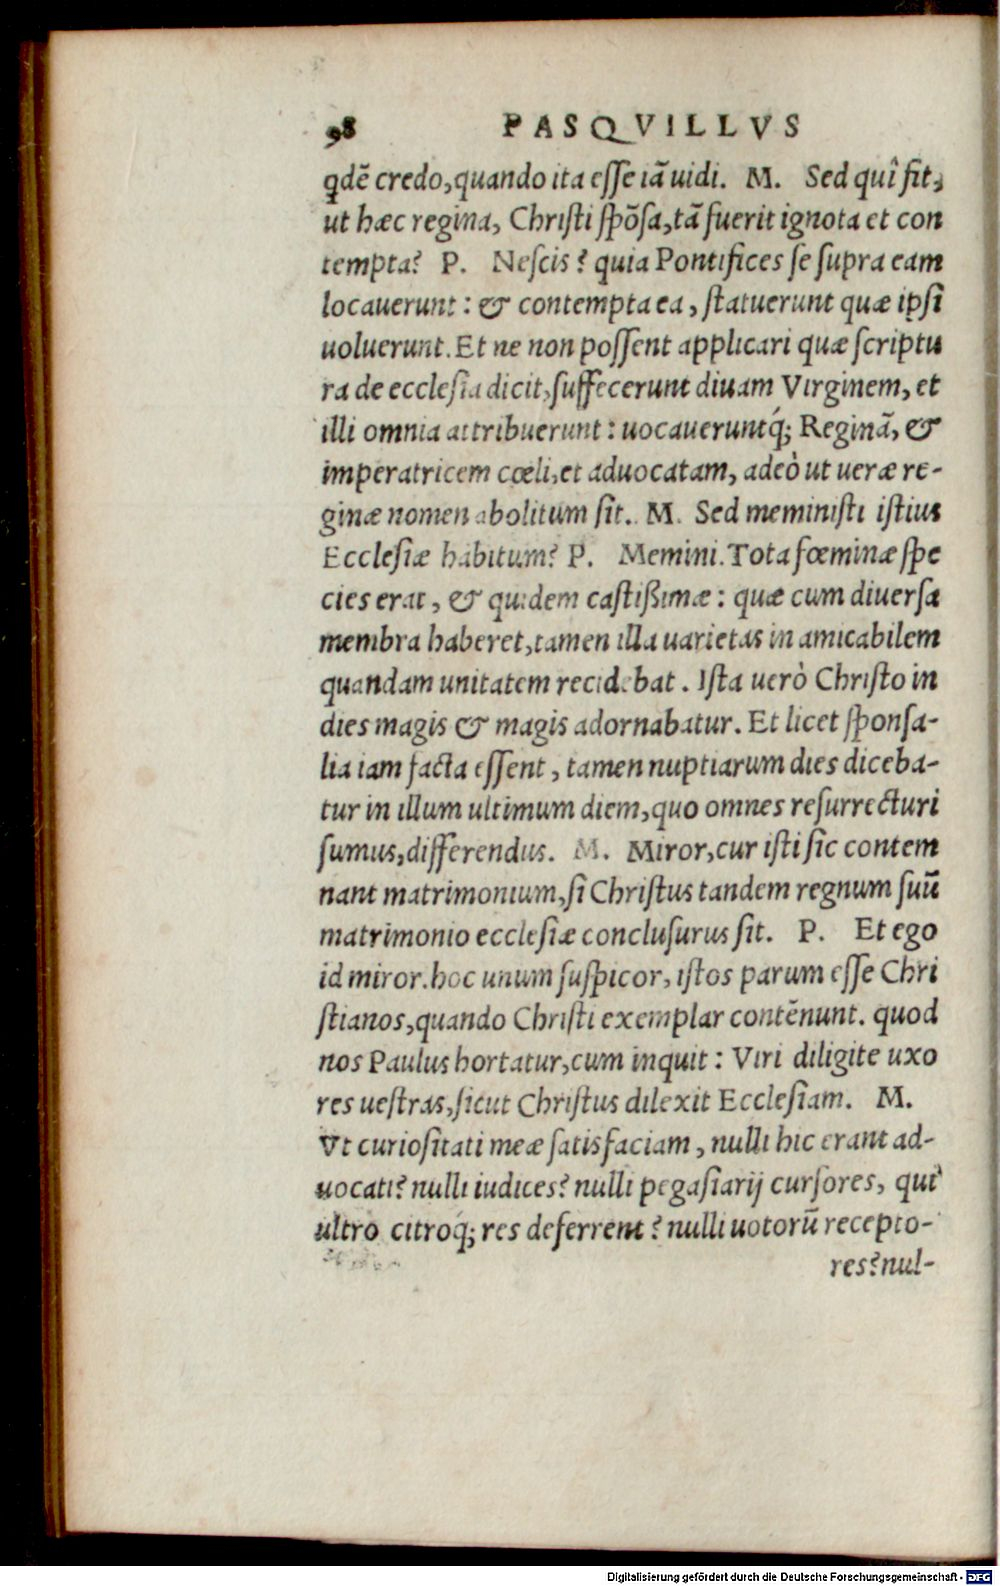 98 PASQVILLVS
qdẽ credo, quando ita esse iã uidi. M. Sed quî fit,
ut hæc regina, Christi spõsa, tã fuerit ignota et con
tempta? P. Nescis? quia Pontifices se supra eam
locauerunt: & contempta ea, statuerunt quæ ipsi
uoluerunt. Et ne non possent applicari quæ scriptu
ra de ecclesia dicit, suffecerunt diuam Virginem, et
illi omnia attribuerunt: uocaueruntq́; Reginã, &
imperatricem cœli, et aduocatam, adeò ut ueræ re-
ginæ nomen abolitum sit. M. Sed meministi istius
Ecclesiæ habitum? P. Memini. Tota fœminæ spe
cies erat, & quidem castißimæ: quæ cum diuersa
membra haberet, tamen illa uarietas in amicabilem
quandam unitatem recidebat. Ista uerò Christo in
dies magis & magis adornabatur. Et licet sponsa-
lia iam facta essent, tamen nuptiarum dies diceba-
tur in illum ultimum diem, quo omnes resurrecturi
sumus, differendus. M. Miror, cur isti sic contem
nant matrimonium, si Christus tandem regnum suũ
matrimonio ecclesiæ conclusurus sit. P. Et ego
id miror. hoc unum suspicor, istos parum esse Chri
stianos, quando Christi exemplar contẽnunt. quod
nos Paulus hortatur, cum inquit: Viri diligite uxo
res uestras, sicut Christus dilexit Ecclesiam. M.
Vt curiositati meæ satisfaciam, nulli hic erant ad-
uocati? nulli iudices? nulli pegasiarij cursores, qui
ultro citroq́; res deferrent? nulli uotorũ recepto-
res? nul-
Digitalisierung gefördert durch die Deutsche Forschungsgemeinschaft - DFG